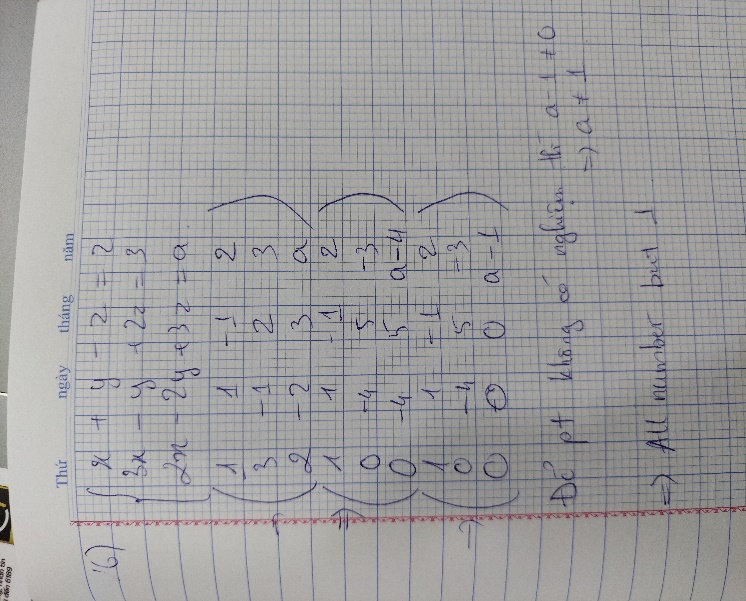 Thứ ngày tháng năm
6)
x + y - z = 2
3x - y + 2z = 3
2x - 2y + 3z = a
1 1 -1 2
3 -1 2 3
2 -2 3 a
=> 1 1 -1 2
0 -4 5 -3
0 -4 5 a-4
=> 1 1 -1 2
0 -4 5 -3
0 0 0 a-1
Để pt không có nghiệm thì a-1 ≠ 0
=> a ≠ 1
=> All number but 1